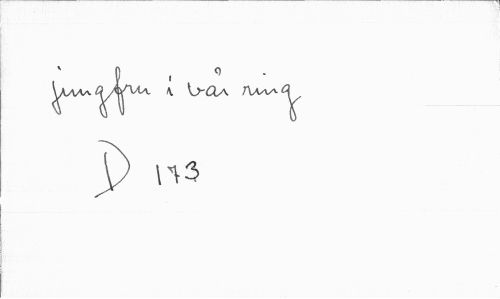 jungfru i vår ring
D 173